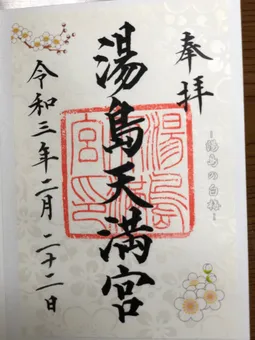 奉拝
湯島の白梅
湯島天満宮
令和三年二月二十二日